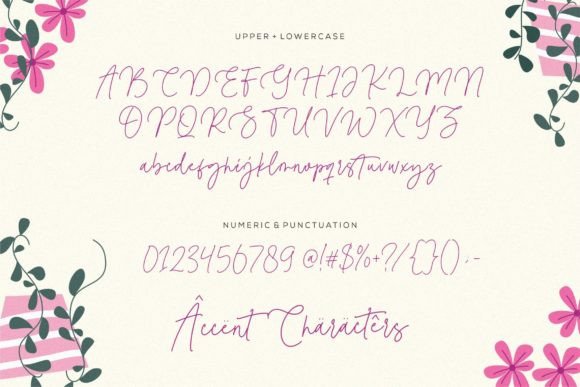 UPPER + LOWERCASE
ABCDEFGHIJKLMN
OPQRSTUVWXYZ
abcdefghijklmnopqrstuvwxyz
NUMERIC & PUNCTUATION
0123456789 @!#$%+?/{}() ; -
Âccënt Chäräctêrs